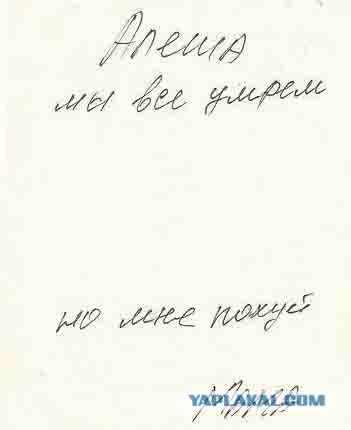 Алеша
мы все умрем
но мне похуй
YAPLAKAL.COM